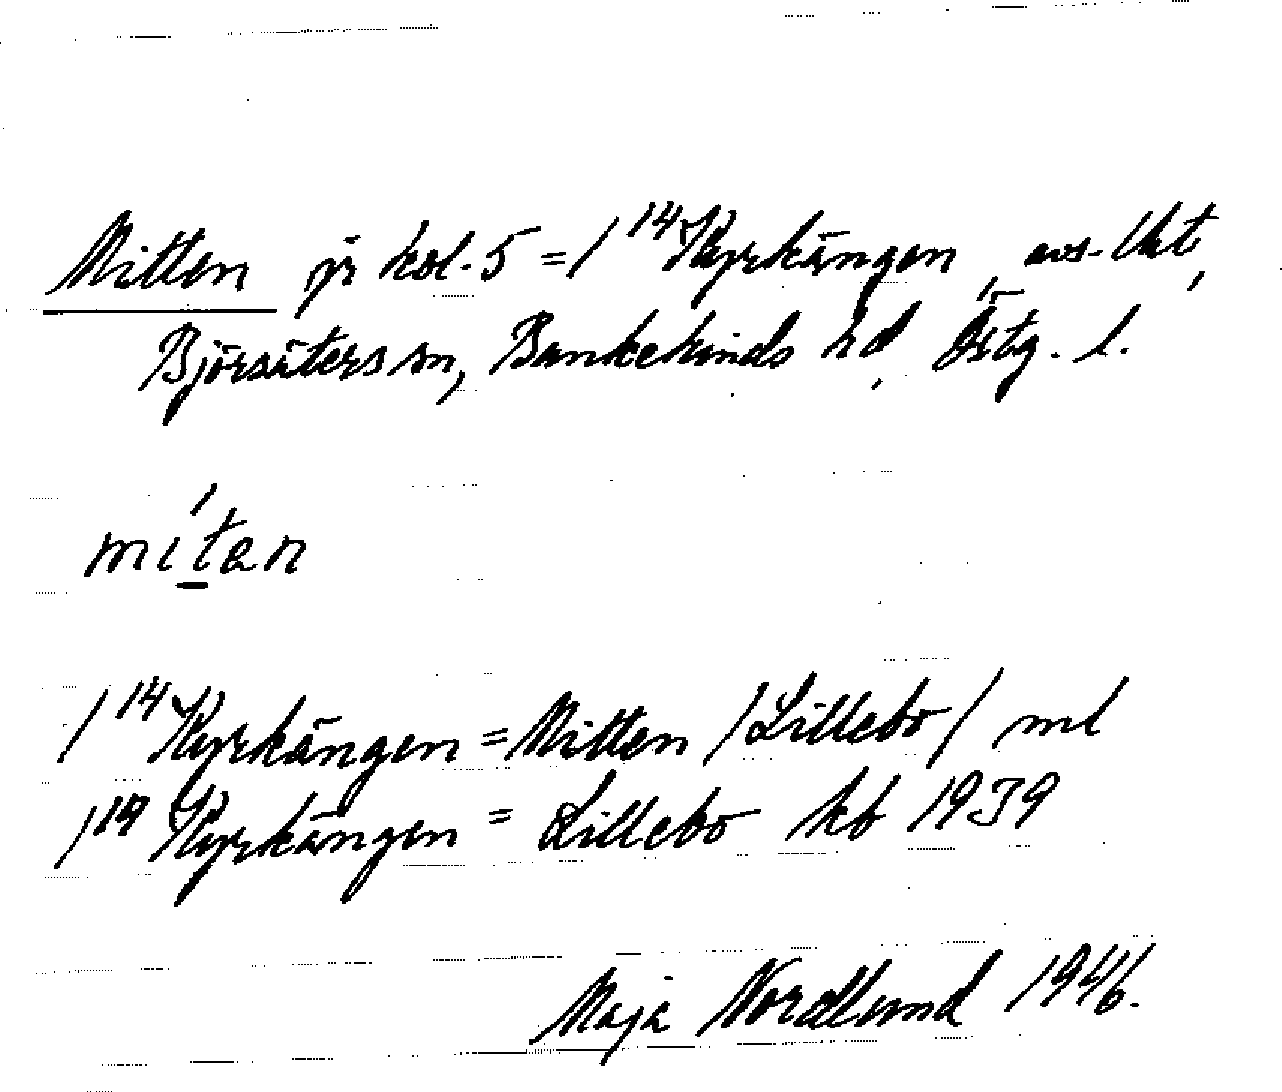 Mitten jr kol. 5 = 1¹⁴ Kyrkängen, avs. Ukt,
Björsäters sn, Bankekinds hd, Östg. l.
mítan
1¹⁴ Kyrkängen = Mitten /Lillebo/ ml
1¹⁴ Kyrkängen = Lillebo kb 1939
Maja Nordlund 1946.